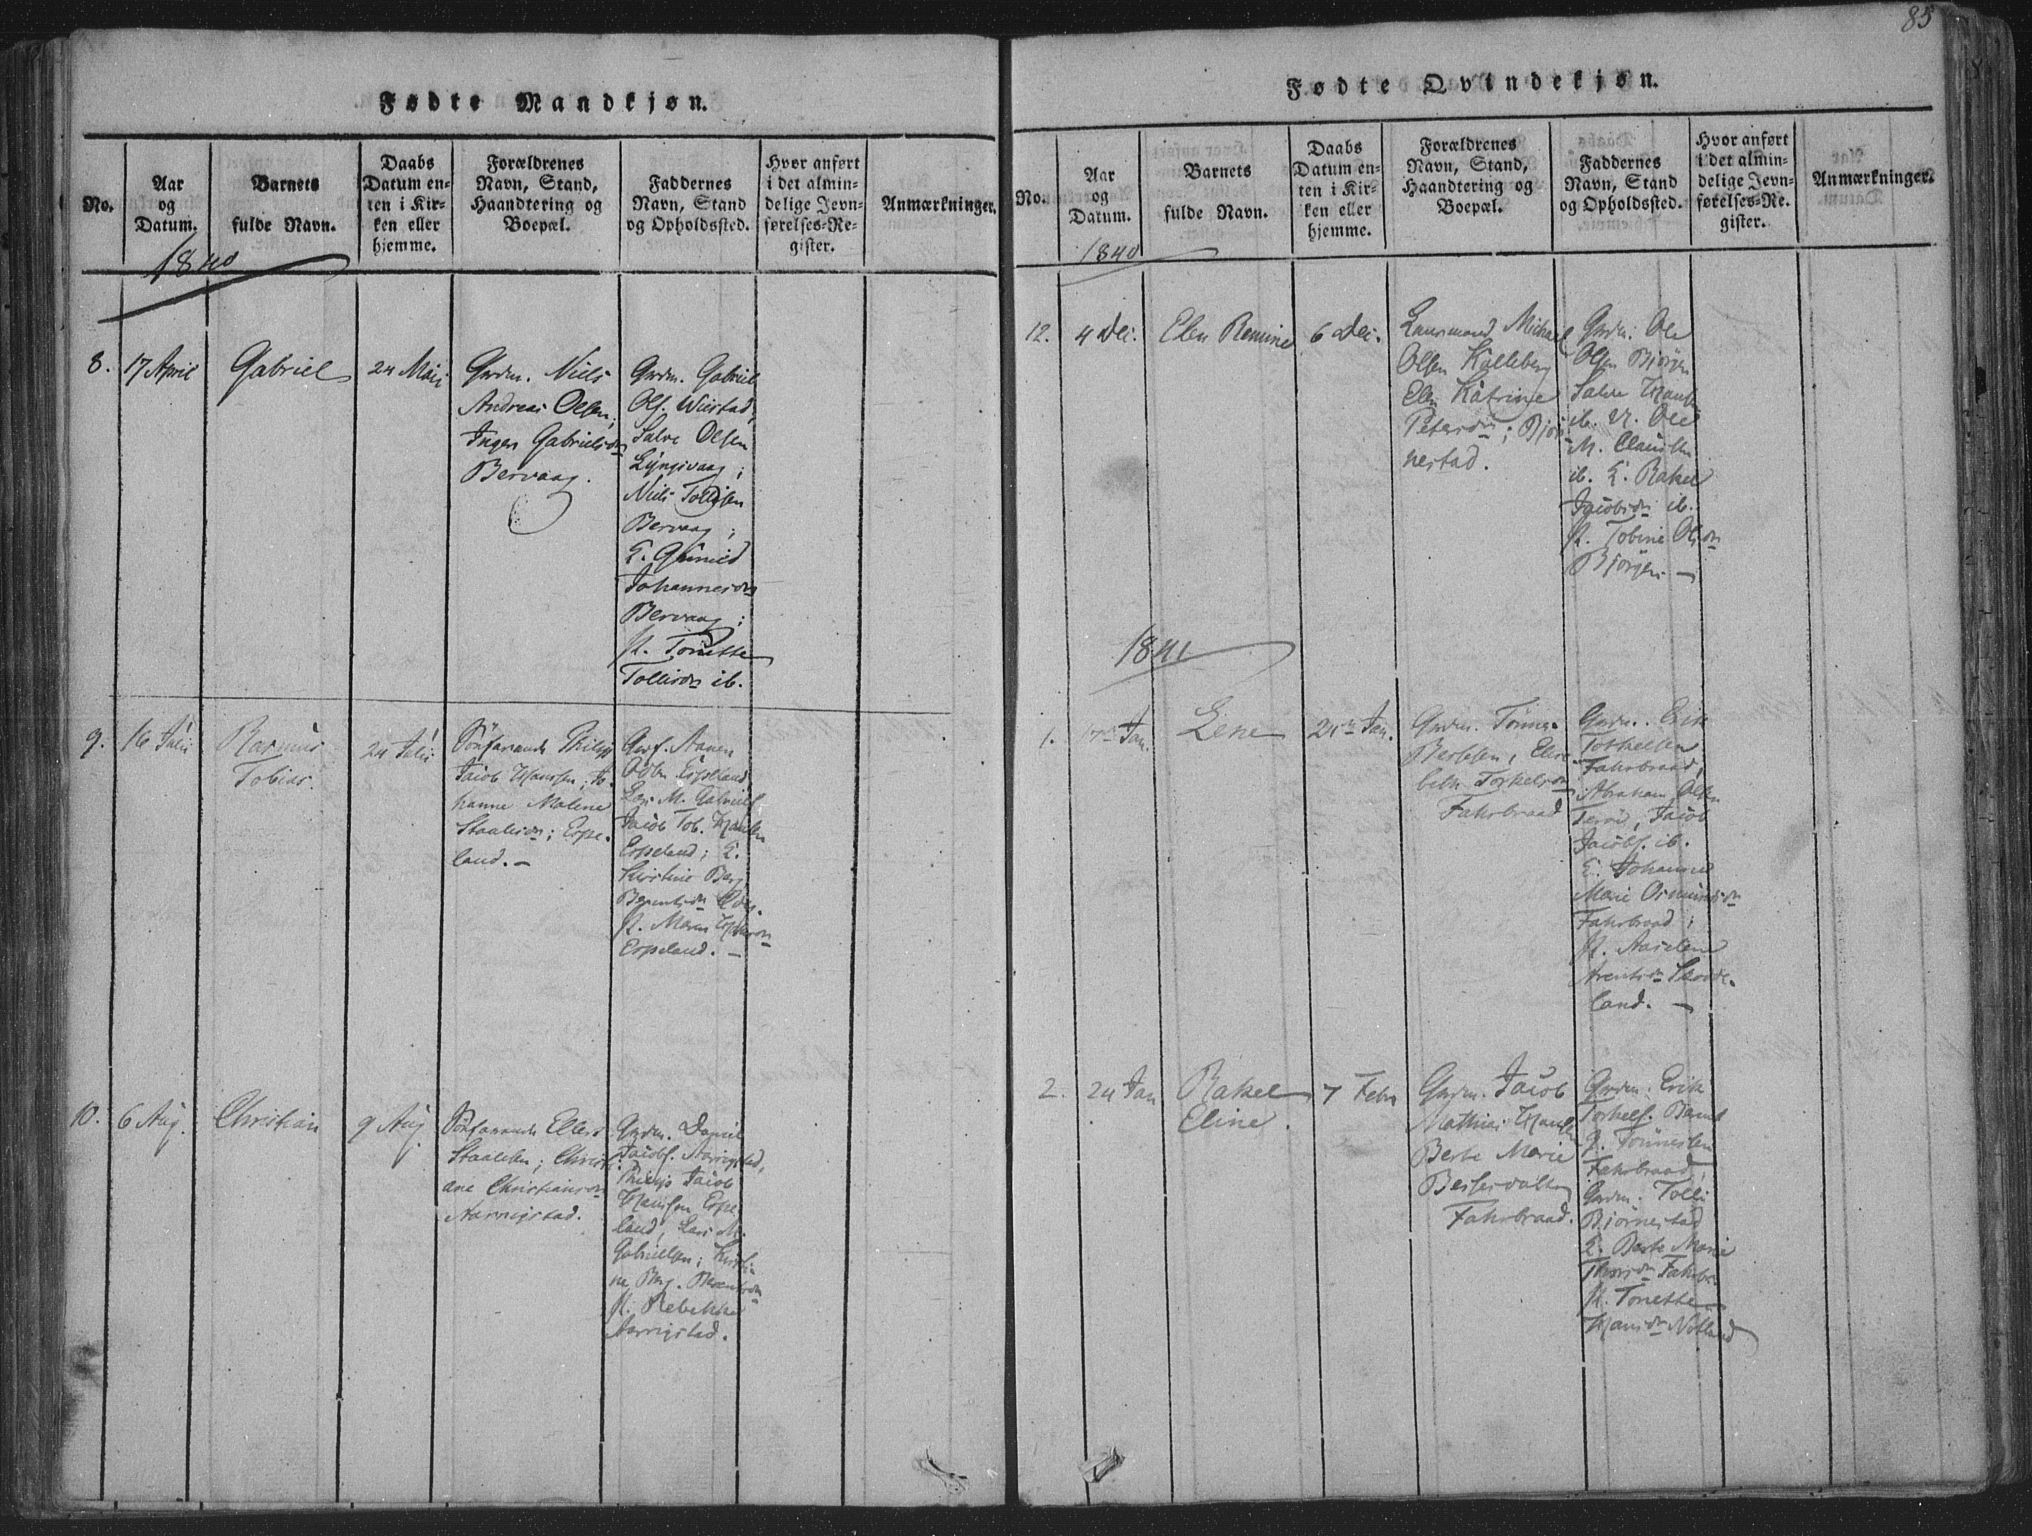 85
Fødte Mandkjøn.
No.
Aar
og
Datum.
Barnets
fulde Navn.
Daabs
Datum en-
ten i Kir-
ken eller
hjemme.
Forældrenes
Navn, Stand,
Haandtering og
Boepæl.
Faddernes
Navn, Stand
og Opholdssted.
Hvor anført
i det almin-
delige Jevn-
førelses-Re-
gister.
Anmærkninger.
1840
8.
17 April
Gabriel
24 Mai
Grdm. Niels
Andreas Olsen,
Inger Gabrielsdn
Bervaag.
Grdm. Gabriel
Ols. Wiistad,
Salve Olsen
Lyngsvaag;
Niels Tollisen
Bervaag;
K. Gunild
Johannesdn
Bervaag;
P. Tonette
Tollisdn ib.
9.
16 Juli
Rasmus
Tobias.
24 Juli
Søfarende Philip
Jacob Hanssen; Jo
hanne Malene
Staalesdn; Espe-
land. -
Aanen
Espeland
Lars M. Gabriels
Jacob Tob. Hansen
Espeland; K.
Kirstine Berg
Berentsdn
P. Maren
Espeland. -
10.
6 Aug.
Christian
9 Aug
Søfarende Ellert
Staalesen; Christi
ane Christiansdn
Aarrigstad.
Grdm. Daniel
Jacobs. Aarrigstad,
Philip Jacob
Hanssen Espe
land, Lars M.
Gabrielsen; Kirsti
ne Berg. Berentsdn
P. Rebekka
Aarrigstad.
Fødte Qvindekjøn.
No.
Aar
og
Datum.
Barnets
fulde Navn.
Daabs
Datum en-
ten i Kir-
ken eller
hjemme.
Forældrenes
Navn, Stand,
Haandtering og
Boepæl.
Faddernes
Navn, Stand
og Opholdssted.
Hvor anført
i det almin-
delige Jevn-
førelses-Re-
gister.
Anmærkninger.
1840
12.
4 Dec.
Elen Remine
6 Dec.
Michael
Olsen Kalleberg
Elen Katrine
Petersdn; Bjør
nestad.
Grdm. Ole
Olsen Bjørgen
Salve Hans
ib. U. Ole
M. Claussen
ib. K. Rakel
Jacobsdn ib.
P. Tobine Olsdn
Bjørgen. -
1841
1.
17 Jan.
Lene
24 Jan.
Grdm. Tønnes
Berssen, Elisa
beth Torkelsdn
Fahrbraad
Grdm. Erik
Torkelsen
Fahrbraad,
Abraham Olsen
Terøe, Jacob
Jacobs. ib.
K. Johanne
Marie Osmundsdn
Fahrbraad;
P. Aaselene
Arentsdn Skode-
land. -
2.
24 Jan
Rakel
Eline.
7 Febr
Grdm. Jacob
Mathias Hansen
Berte Marie
Fahrbraad.
Grdm. Erik
Torkels. Bernt
G. Tønnessen
Fahrbraad,
Grdm. Tolli
Bjørnestad
K. Berte Marie
Fahrbr
P. Tonette
Hansdn Netland